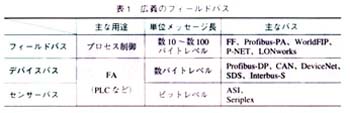 表1 広義のフィールドバス
主な用途 単位メッセージ長 主なバス
フィールドバス プロセス制御 数10～数100
バイトレベル FF、Profibus-PA、WorldFIP、
P-NET、LONworks
デバイスバス FA
(PLCなど) 数バイトレベル Profibus-DP、CAN、DeviceNet、
SDS、Interbus-S
センサーバス ビットレベル ASI、
Seriplex